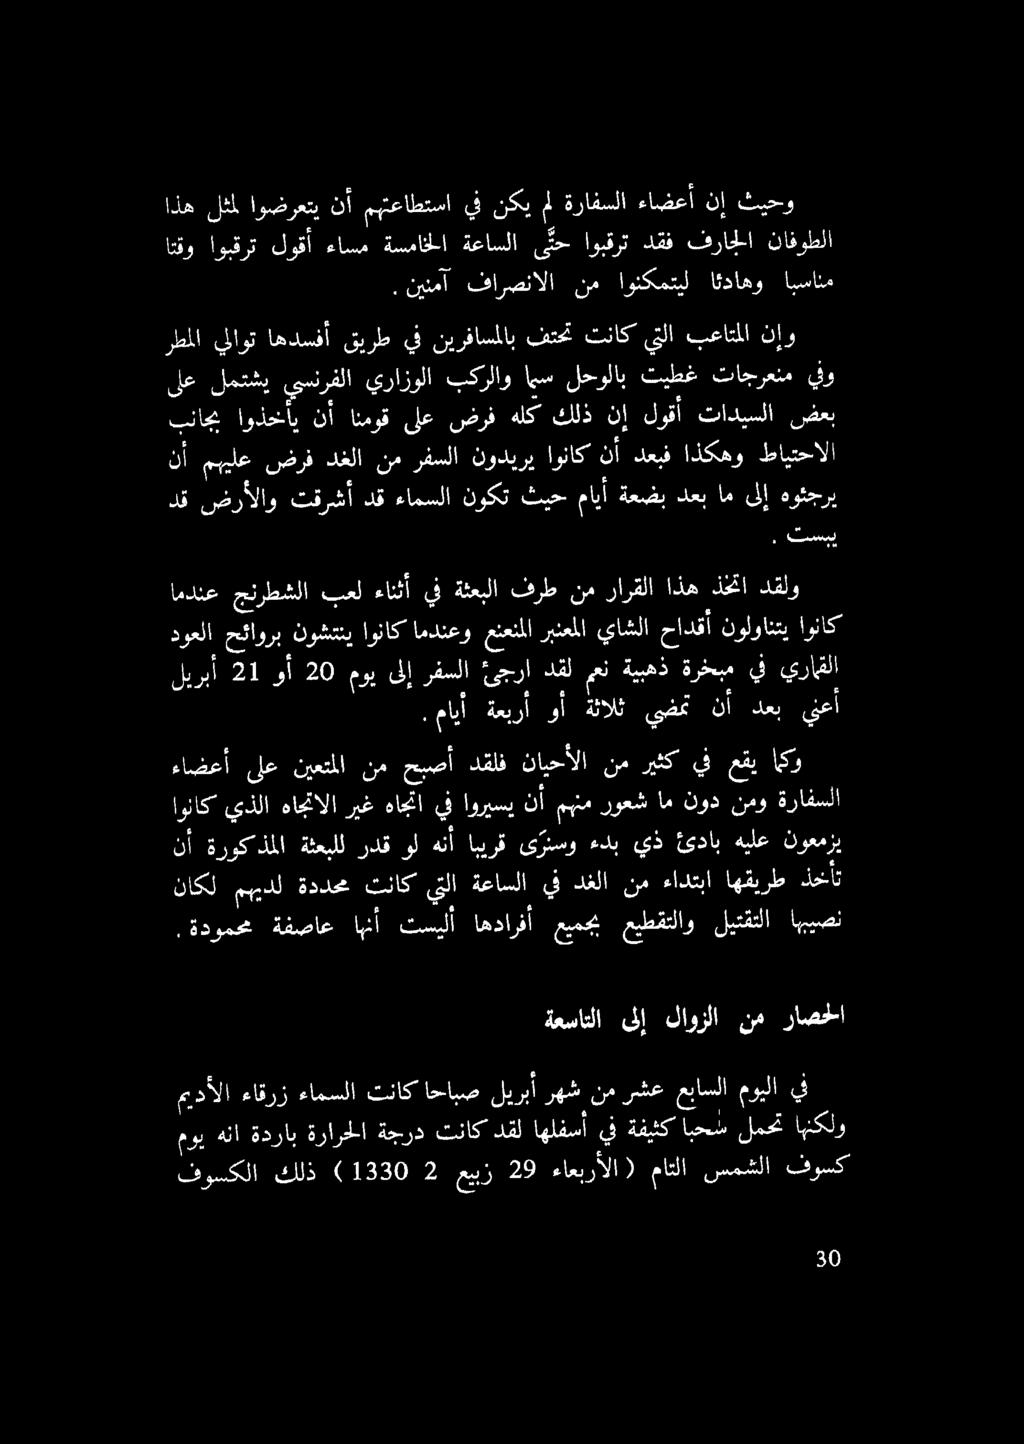 وحيث إن أعضاء السفارة لم يكن في استطاعتهم أن يتعرضوا لمثل هذا
الطوفان الجارف فقد ترقبوا حتَّى الساعة الخامسة مساء أقول ترقبوا وقتا
مناسبا وهادئا ليتمكنوا من الانصراف آمنين .
وإن المتاعب التي كانت تحتف بالمسافرين في طريق أفسدها توالي المطر
وفي منعرجات غطيت بالوحل سيما والركب الوزاري الفرنسي يشتمل على
بعض السيدات أقول إن ذلك كله فرض على قومنا أن يأخذوا بجانب
الاحتياط وهكذا فبعد أن كانوا يريدون السفر من الغد فرض عليهم أن
يرجئوه إلى ما بعد بضعة أيام حيث تكون السماء قد أشرقت والأرض قد
يبست .
ولقد اتخذ هذا القرار من طرف البعثة في أثناء لعب الشطرنج عندما
كانوا يتناولون أقداح الشاي المعنبر المنعنع وعندما كانوا ينتشون بروائح العود
القماري في مبخرة ذهبية نعم لقد ارجئ السفر إلى يوم 20 أو 21 أبريل
أعني بعد أن تمضي ثلاثة أو أربعة أيام .
وكما يقع في كثير من الأحيان فلقد أصبح من المتعين على أعضاء
السفارة ومن دون ما شعور منهم أن يسيروا في اتجاه غير الاتجاه الذي كانوا
يزمعون عليه بادئ ذي بدء وسنرَى قريبا أنه لو قدر للبعثة المذكورة أن
تأخذ طريقها ابتداء من الغد في الساعة التي كانت محددة لديهم لكان
نصيبها التقتيل والتقطيع بجميع أفرادها أليست أنها عاصفة محمودة .
الحصار من الزوال إلى التاسعة
في اليوم السابع عشر من شهر أبريل صباحا كانت السماء زرقاء الأديم
ولكنها تحمل سُحبا كثيفة في أسفلها لقد كانت درجة الحرارة باردة انه يوم
كسوف الشمس التام (الأربعاء 29 زبيع 2 1330) ذلك الكسوف
30